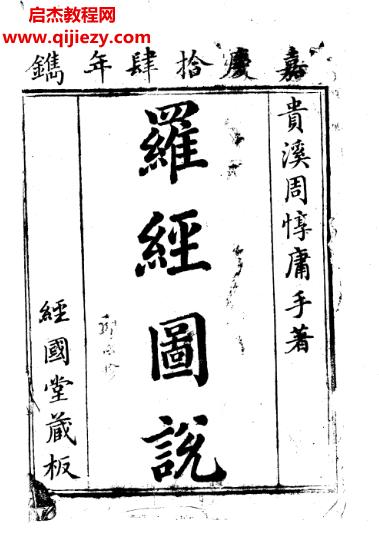 启杰教程网
www.qijiezy.com
嘉慶拾肆年鐫
貴溪周惇庸手著
羅經圖說
經國堂藏板